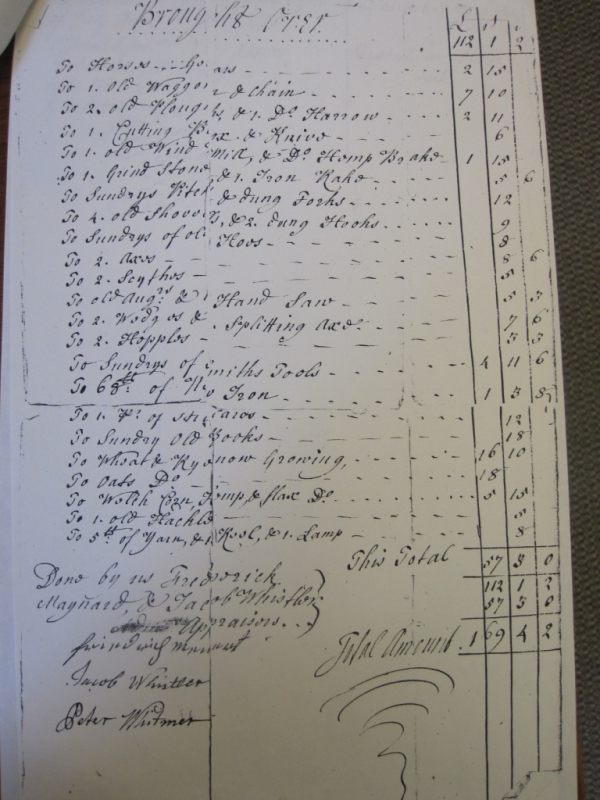 Brought Over. £ s
112 1 2
To Horses Gears - 2 15
To 1. Old Waggon & Chain - 7 10
To 2. old Ploughs, & 1. Do Harrow - 2 11
To 1. Cutting Box & Knive - 6
To 1. old Wind Mill, & Do Hemp Brake 1 15
To 1. Grind Stone & 1. Iron Rake - 5 6
To Sundrys Pitch & dung Forks - 12
To 4. old Shovels, & 2. dung Hooks -
To Sundrys of old Hoes - 9
To 2. Axes - 8
To 2. Scythes - 5 6
To old Augrs & Hand Saw - 5 3
To 2. Wedges & Splitting Axe - 7 6
To 2. Hopples -
To Sundrys of Smiths Tools - 4 11 6
To 68 lb of Iron - 1 3
To 1. Pr of - 12
To Sundry Old Books - 18
To Wheat & Rye now Growing, 16 10
To Oats Do - 18
To Welch Corn, Hemp, & flax Do - 5 15
To 1. old Hachle - 5
To 5 lb of Yarn, & 1. Reel, & 1. Lamp - 8
This Total 57 3 0
112 1 2
57 3 0
Done by us Frederick
Maynard, & Jacob Whistler
Appraisors
Total Amount 169 4 2
Jacob Whistler
Peter Witmer